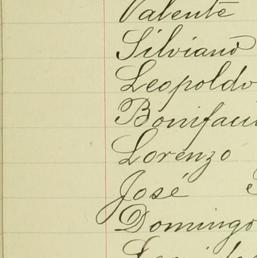 Valente
Silviano
Leopoldo
Lorenzo
José
Domingo